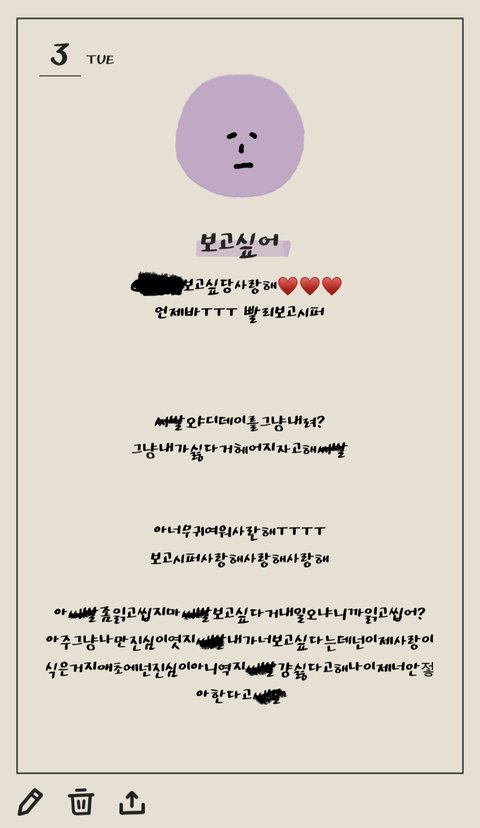 3 TUE
보고싶어
보고싶당사랑해♥️♥️♥️
언제봐ㅜㅜㅜ 빨리보고시퍼
왜디데이를그냥내려?
그냥내가싫다거헤어지자고해
아너무귀여워사란해ㅜㅜㅜㅜ
보고시퍼사랑해사랑해사랑해
아 좀읽고씹지마 보고싶다거내일오냐니까읽고씹어?
아주그냥나만진심이엿지 내가너보고싶다는데넌이제사랑이
식은거지애초에넌진심이아니역지 걍싫다고해나이제너안젛
아한다고